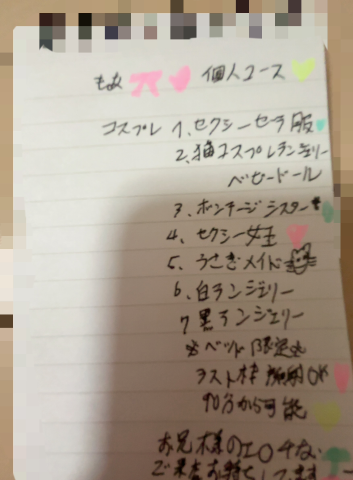 もあ 個人コース
コスプレ 1、セクシーセーラー服
2、猫コスプレランジェリー
ベビードール
3、ボンテージシスター
4、セクシー女王
5、うさぎメイド
6、白ランジェリー
7 黒ランジェリー
※ベッド限定※
ラスト枠 OK
90分から可能
お兄様のエロ可な
ご来店お待ちしてます